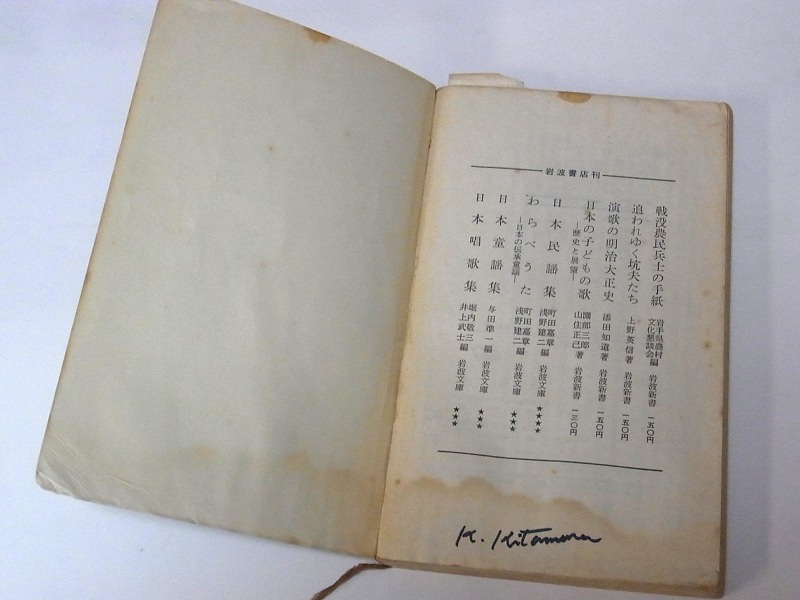 岩波書店刊
戦没農民兵士の手紙 岩手県農村文化懇談会編 岩波新書 一五〇円
追われゆく坑夫たち 上野英信著 岩波新書 一五〇円
演歌の明治大正史 添田知道著 岩波新書 一五〇円
日本の子どもの歌 ―歴史と展望― 園部三郎 山住正己著 岩波新書 一三〇円
日本民謡集 町田嘉章 浅野建二編 岩波文庫 ★★★★
わらべうた ―日本の伝承童謡― 町田嘉章 浅野建二編 岩波文庫 ★★★
日本童謡集 与田凖一編 岩波文庫 ★★★
日本唱歌集 堀内敬三 井上武士編 岩波文庫 ★★★
K. Kitamura